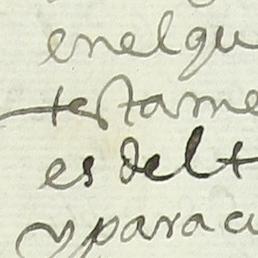 enelqu
testame
es del t
y para cu